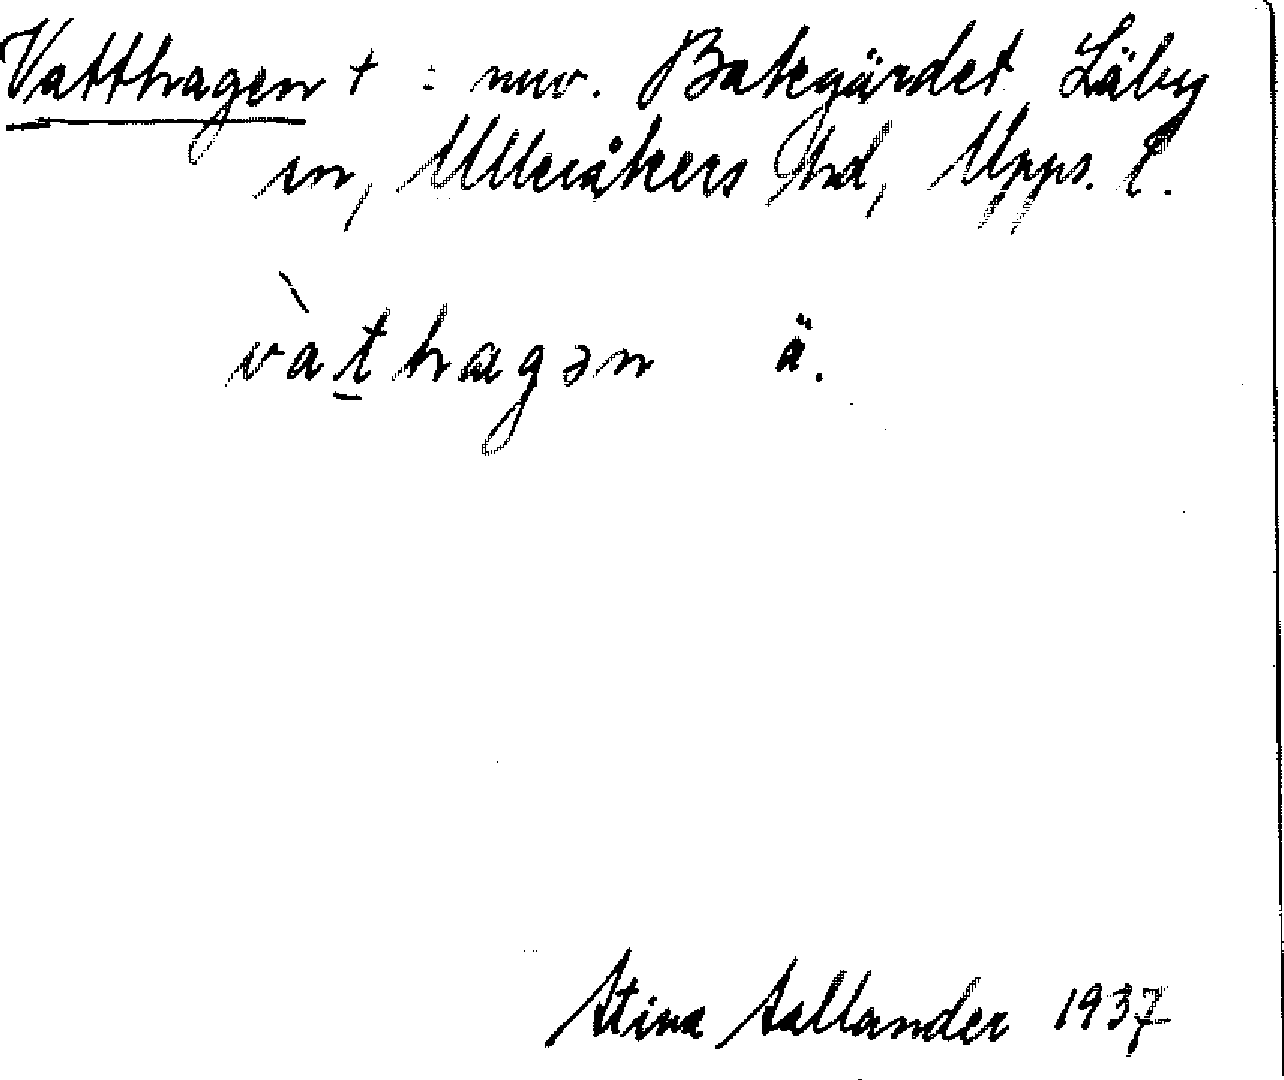 Vatthagen + = nuv. Bakgärdet Läby
sn, Ulleråkers hd, Upps. l.
vàthagən ä.
Stina Sallander 1937